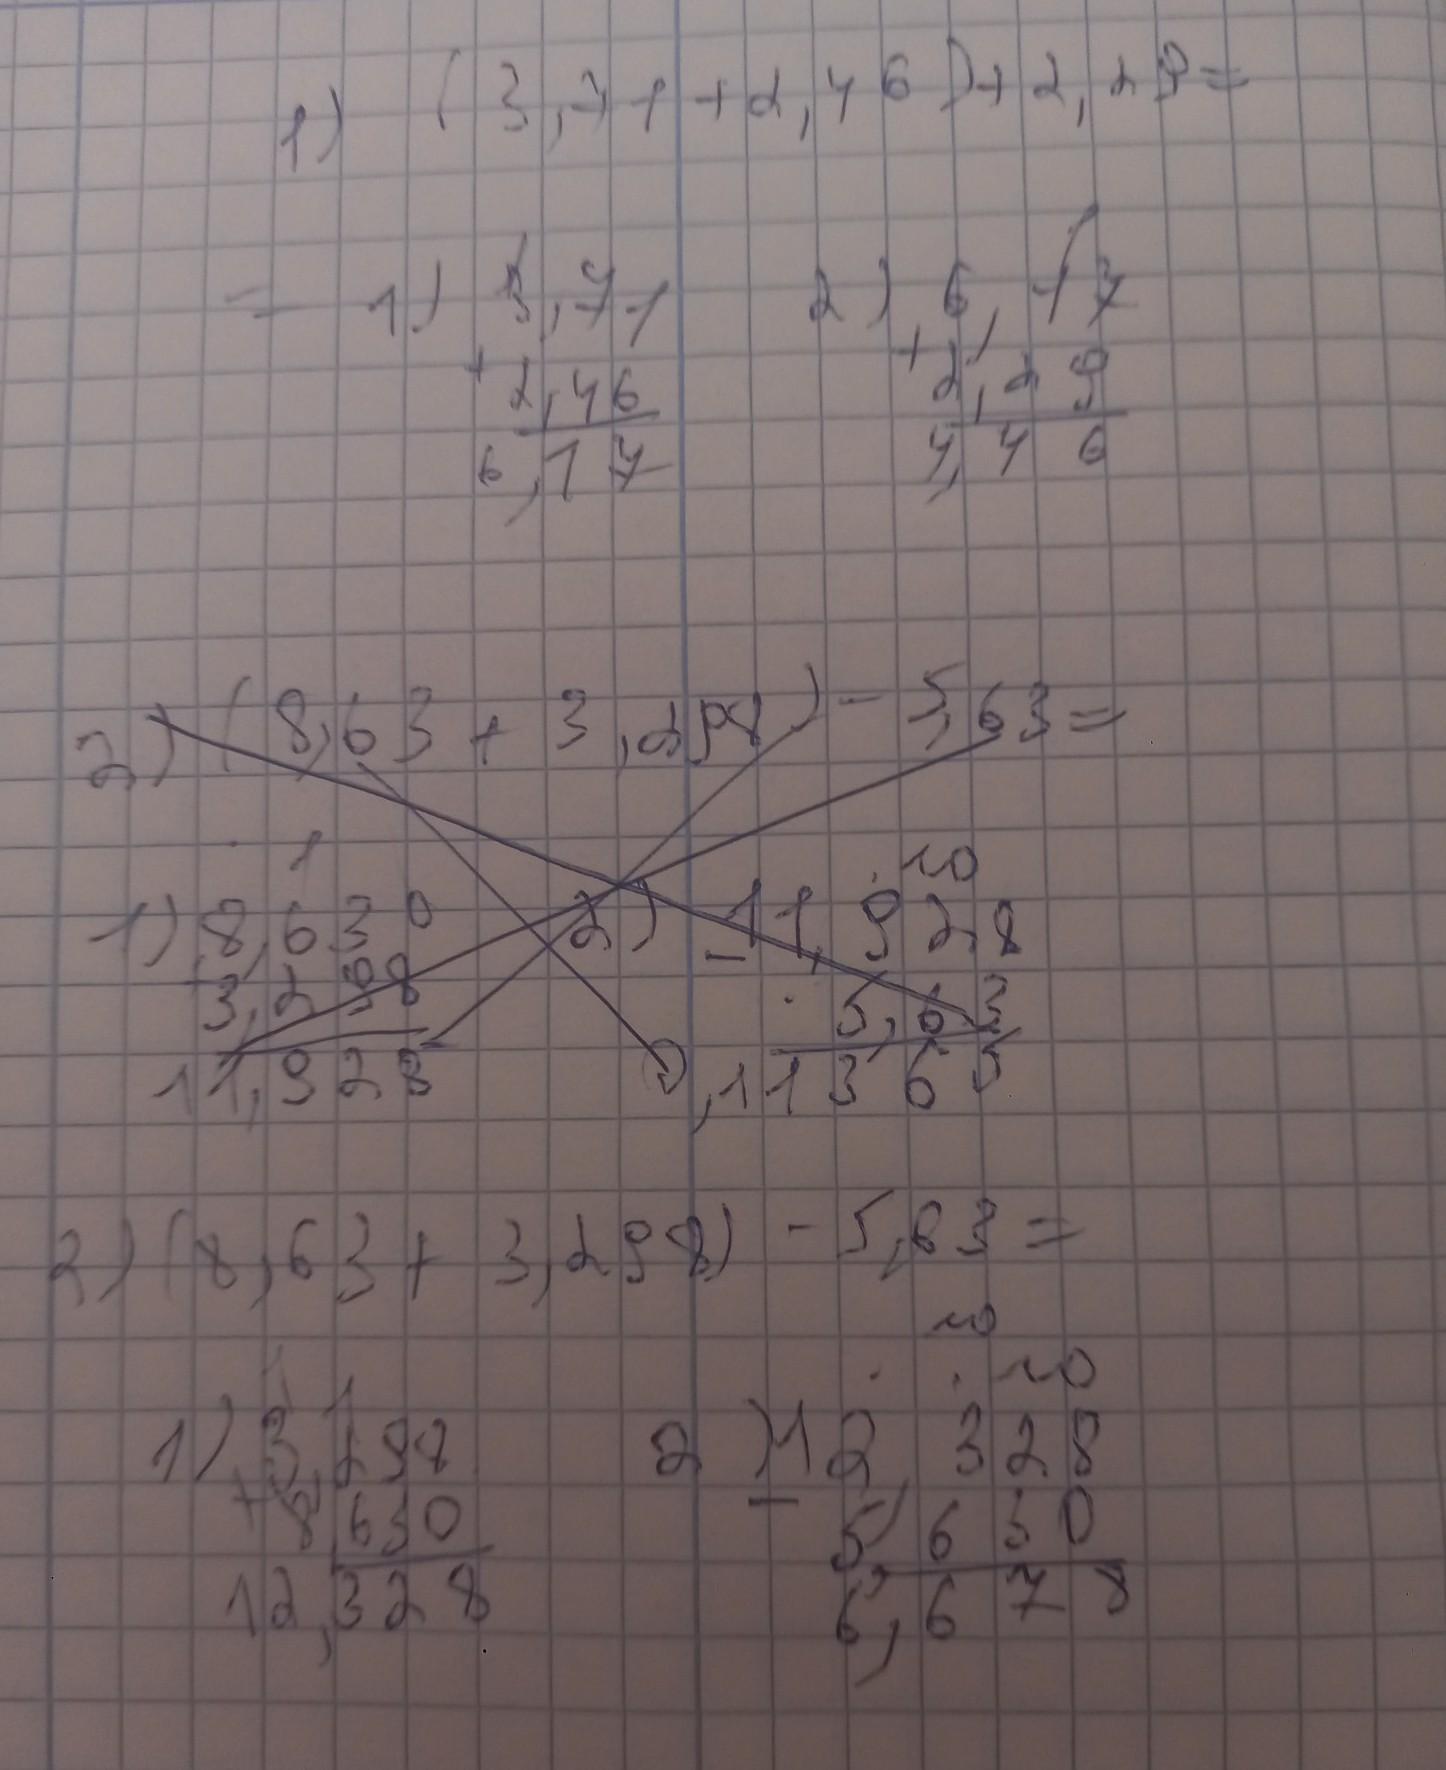 1) (3,71+2,46)+2,29=
= 1) 3,71 2) 6,17
+ 2,46 + 2,29
6,17 4,46
2) (8,63+3,298)-5,63=
1
10
1) 8,630 2) 11,928
+ 3,298 - 5,63
11,928 ,11365
2) (8,63+3,298)-5,63=
10
10
1) 3,298 2) 12,328
+ 8,630 - 5,630
12,328 6,678